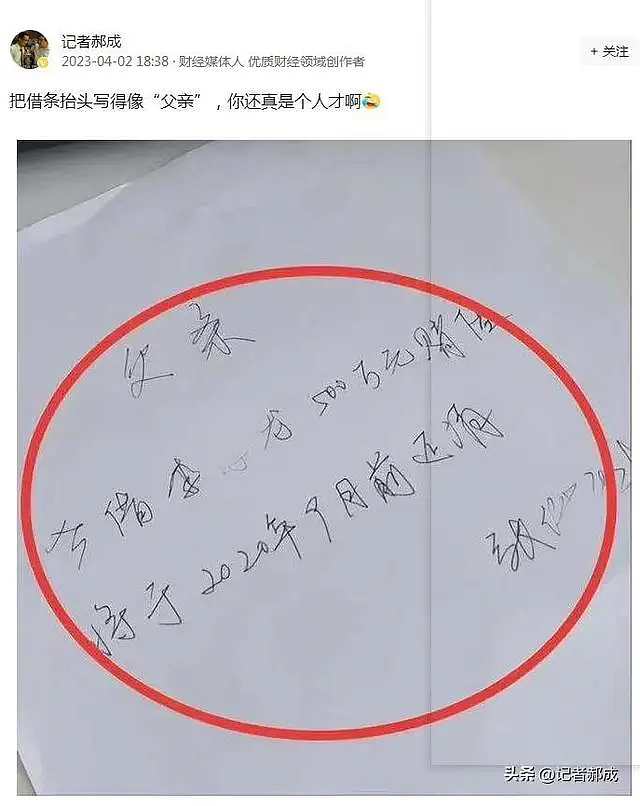 记者郝成
2023-04-02 18:38 · 财经媒体人 优质财经领域创作者
+ 关注
把借条抬头写得像“父亲”，你还真是个人才啊🤣
父亲
借李 龙500万元赌
将于2020年9月前还清
头条 @记者郝成